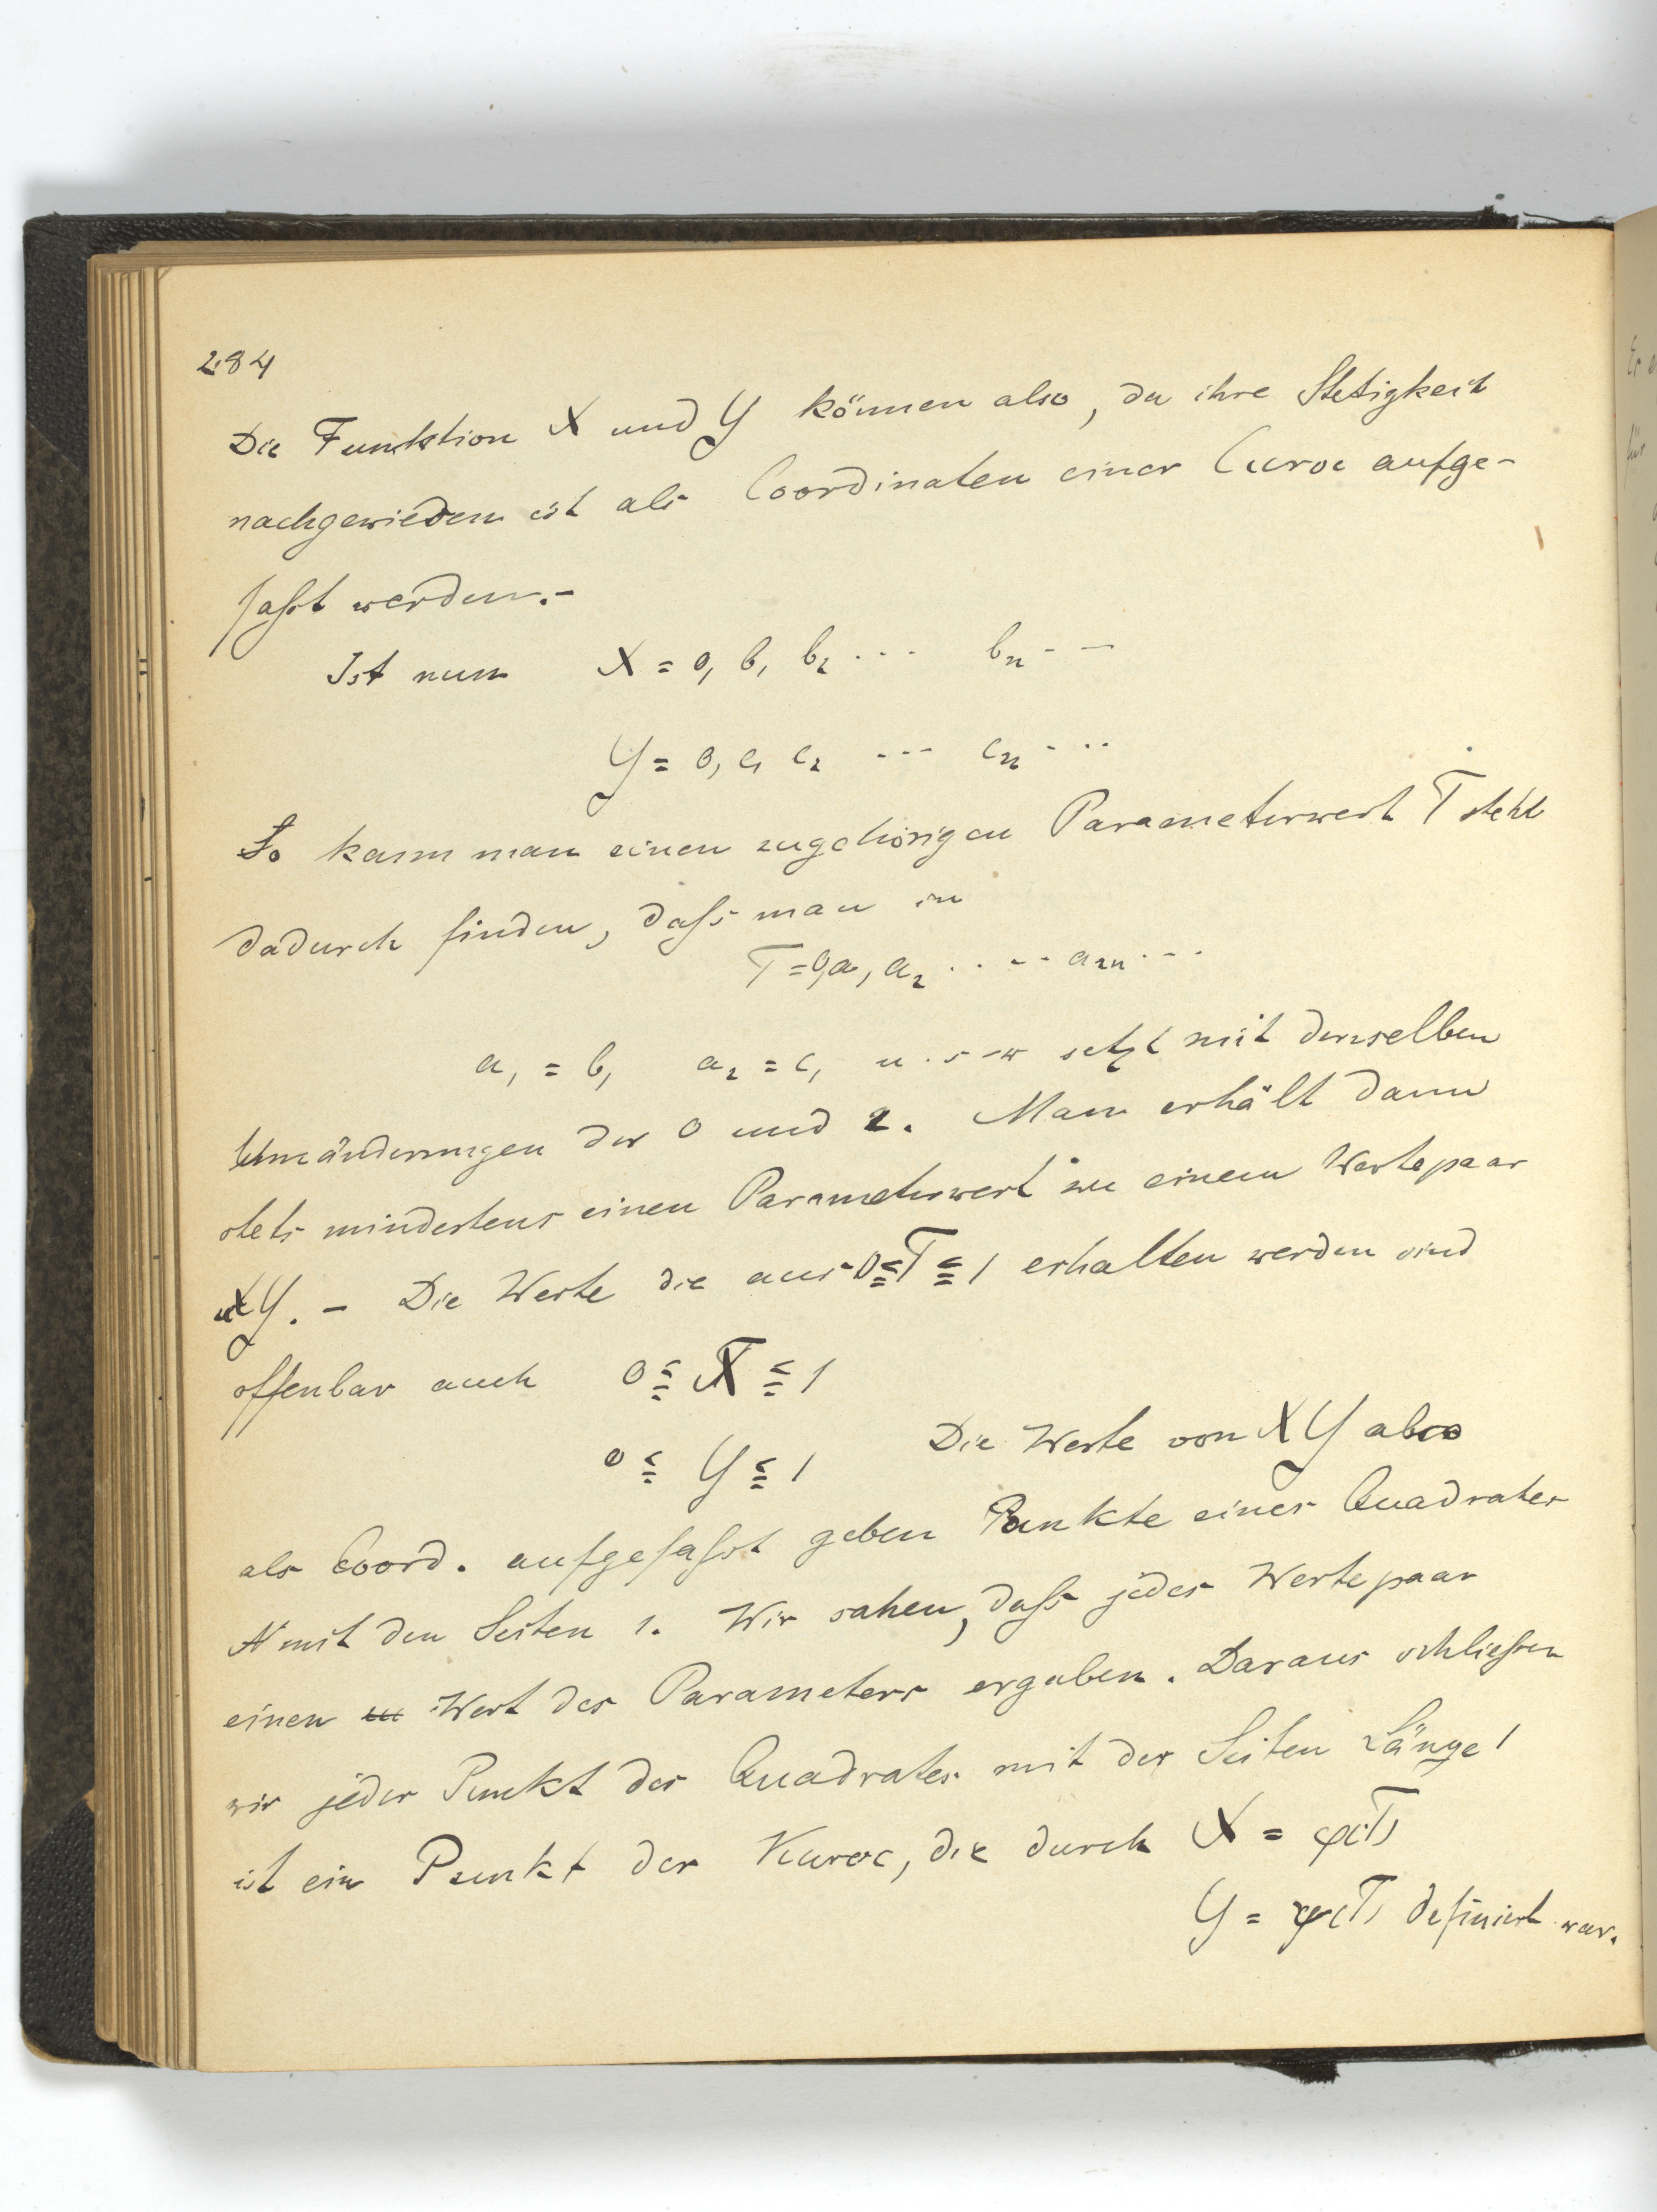 284
Die Funktion X und Y können also, da ihre Stetigkeit
nachgewiesen ist als Coordinaten einer Curve aufge-
faßt werden.-
Ist nun X = 0, b₁ b₂ ... bₙ - -
Y = 0, c₁ c₂ --- cₙ ...
So kann man einen zugehörigen Parameterwert T stets
dadurch finden, daß man in
T = 0, a₁ a₂ . . - - a₂ₙ . - .
a₁ = b₁ a₂ = c₁ u. s. w setzt mit denselben
Umänderungen der 0 und 2. Man erhält dann
stets mindestens einen Parameterwert zu einem Wertepaar
XY. - Die Werte die aus 0 ≦ T ≦ 1 erhalten werden sind
offenbar auch 0 ≦ X ≦ 1
0 ≦ Y ≦ 1 Die Werte von X Y also
als Coord. aufgefaßt geben Punkte eines Quadrates
mit den Seiten 1. Wir sahen, daß jedes Wertepaar
einen Wert des Parameters ergaben. Daraus schließen
wir jeder Punkt des Quadrates mit der Seiten Länge 1
ist ein Punkt der Kurve, die durch X = φ(T)
Y = ψ(T) definiert war.